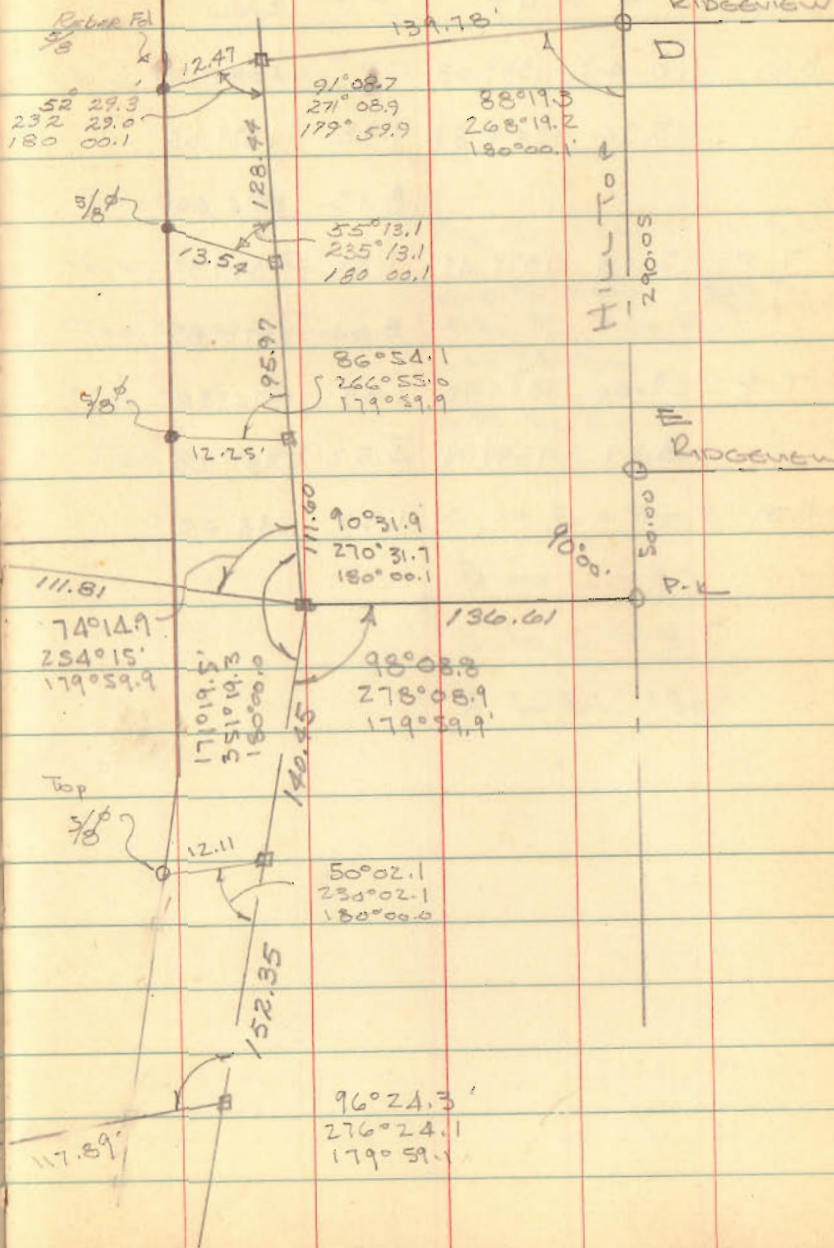 RIDGEVIEW
Rebar Fd
5/8
139.78'
12.47
D
52° 29.3'
232 29.0
180 00.1
91° 08.7
271° 08.9
179° 59.9
88°19.3
268°19.2
180°00.1'
128.44
5/8 ϕ
HILL TOP
290.05
55°13.1
235°13.1
180 00.1
13.52
195.97
86°54.1
266°55.0
179°59.9
5/8 ϕ
12.25'
E
RIDGEVIEW
111.60
90°31.9'
270°31.7
180°00.1
90°00'
50.00
P-K
111.81
136.61
74°14.9
254°15'
179°59.9
171°19.5'
351°19.3
180°00.0
98°08.8
278°08.9
179°59.9'
140.45
Top
5/8 ϕ
12.11
50°02.1
230°02.1
180°00.0
152.35
96°24.3'
276°24.1
179°59.1
117.89'